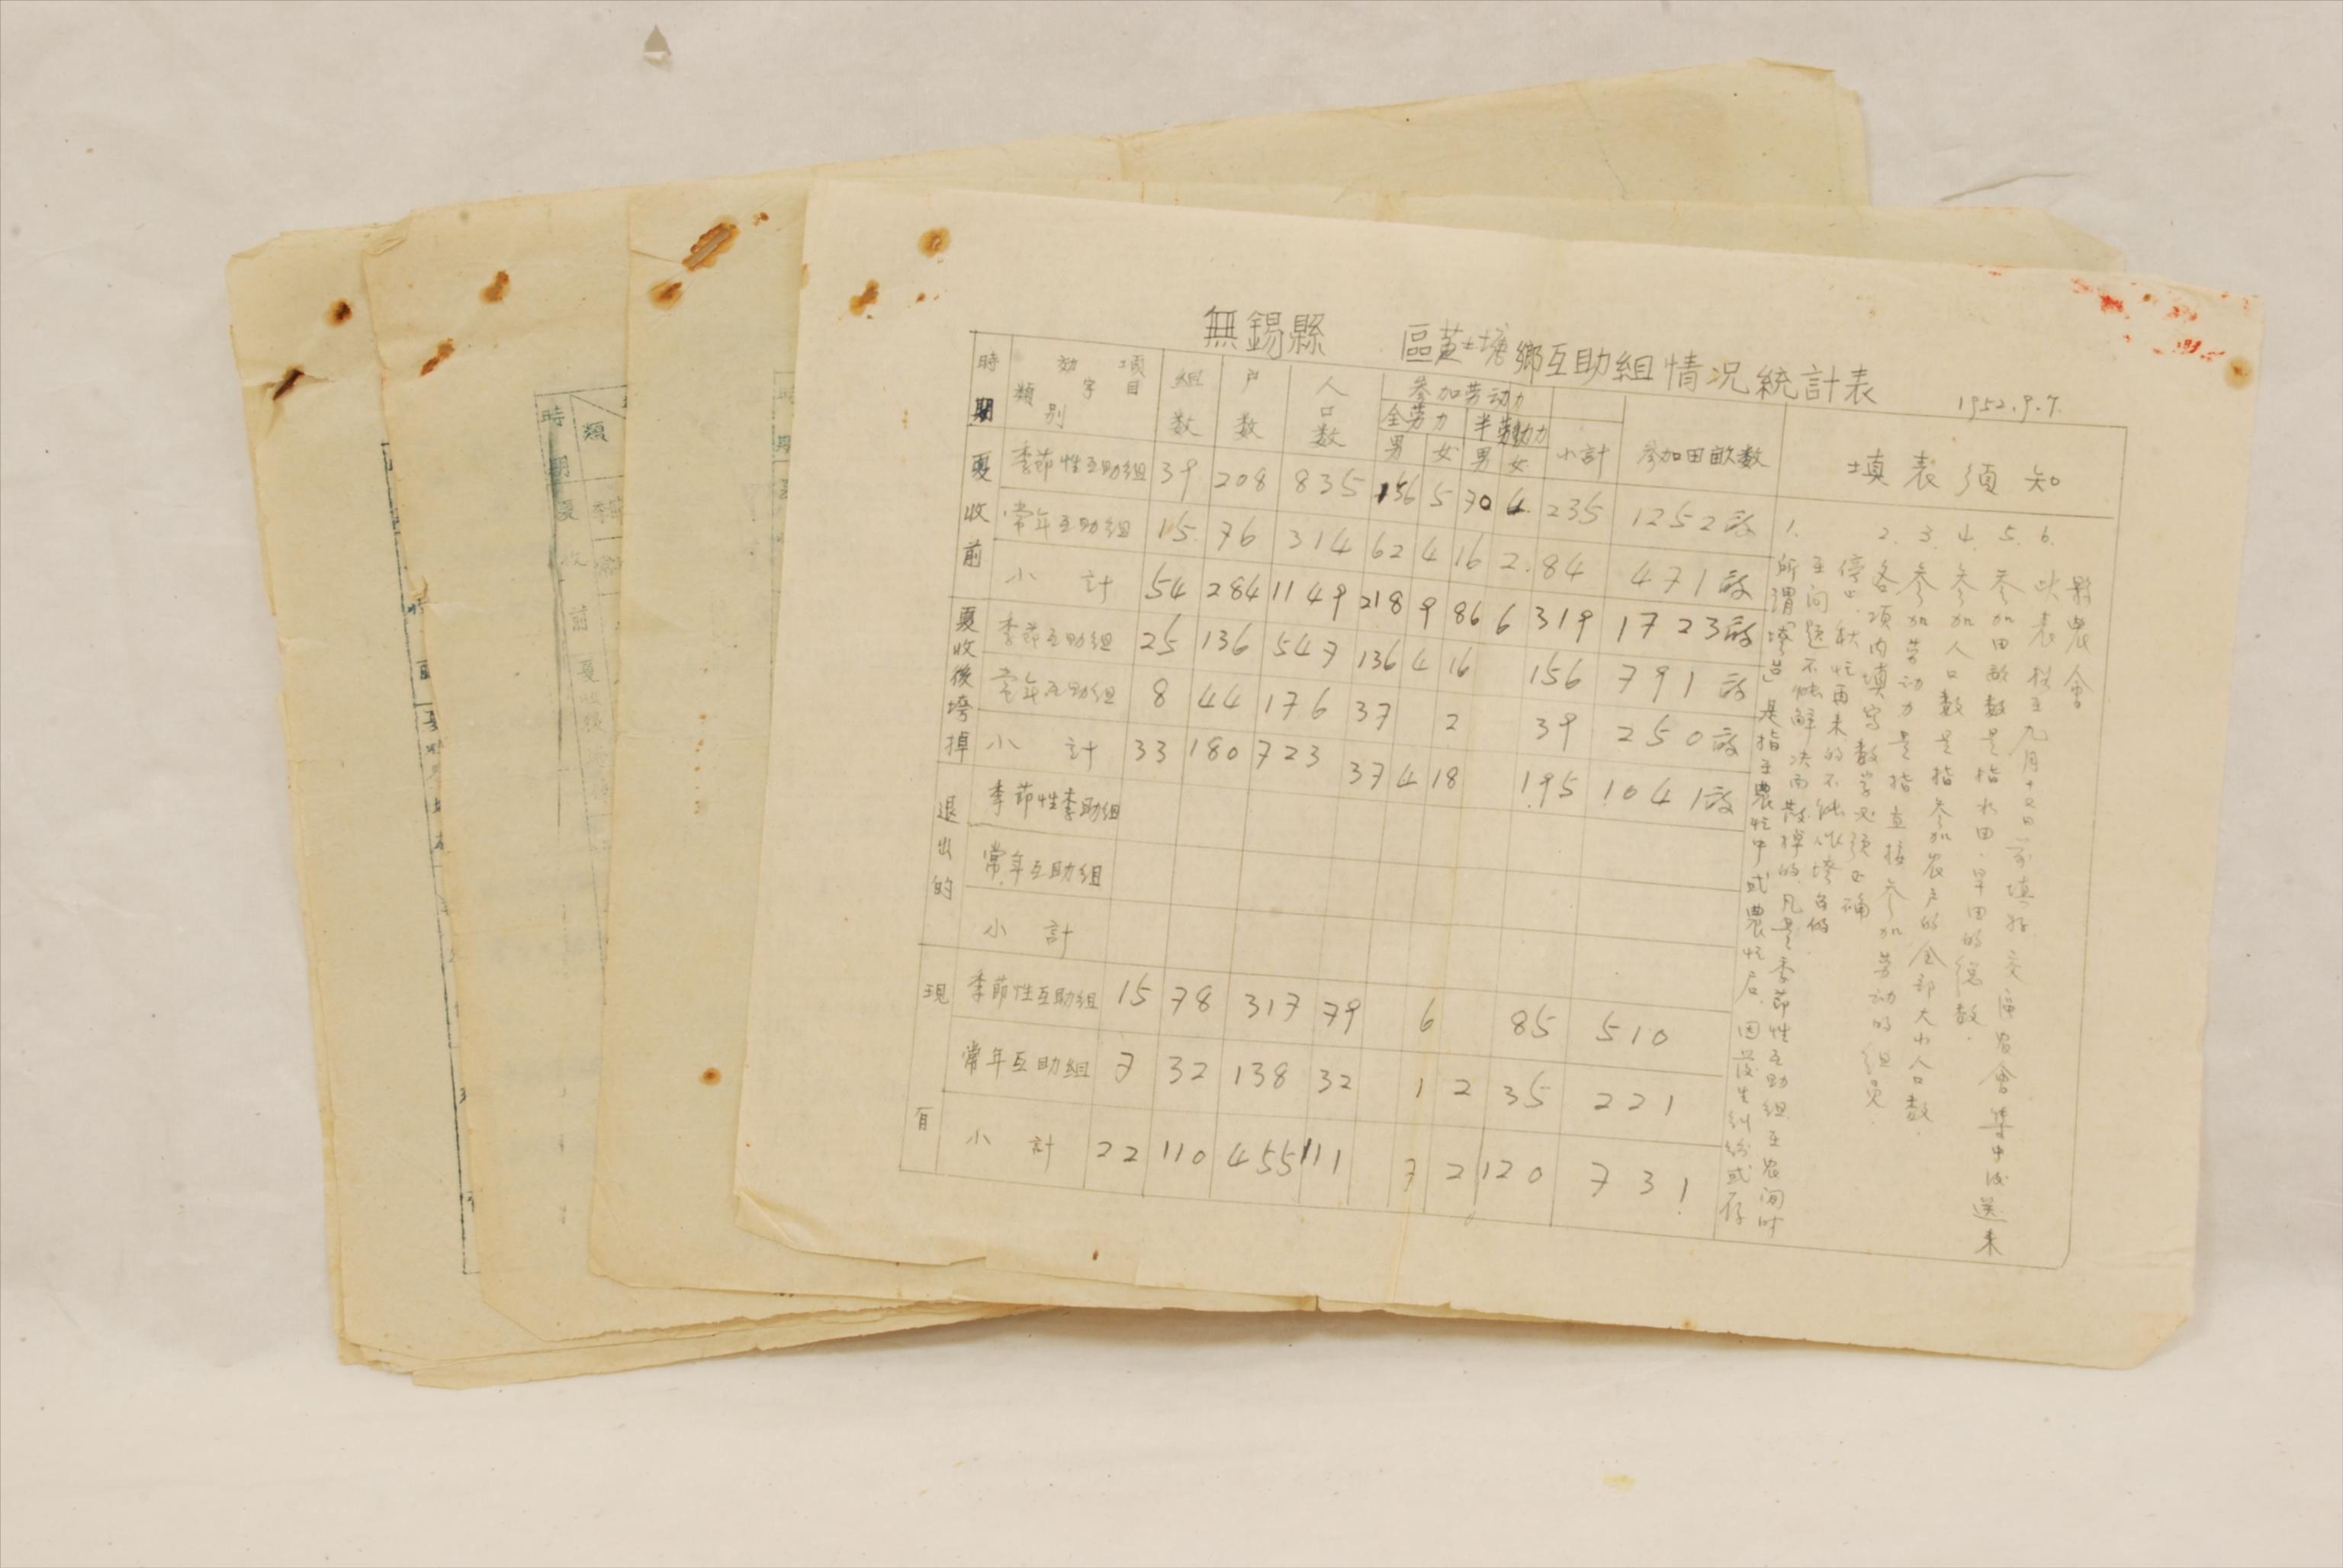 無錫縣 區黃土塘鄉互助組情況統計表
1952.9.7.
時期 類別 数字 項目 組数 户数 人口数 参加劳动力 小計 参加田畝数 填表須知
全劳力 半劳動力
男 女 男 女
夏收前 季節性互助組 39 208 835 156 5 70 4 235 1252畝
常年互助組 15 76 314 62 4 16 2 84 471畝
小計 54 284 1149 218 9 86 6 319 1723畝
夏收後垮掉 季節互助組 25 136 547 136 4 16 156 791畝
常年互助組 8 44 176 37 2 39 250畝
小計 33 180 723 37 4 18 195 1041畝
退出的 季節性季助組
常年互助組
小計
現有 季節性互助組 15 78 317 79 6 85 510
常年互助組 7 32 138 32 1 2 35 221
小計 22 110 455 111 7 2 120 731
1. 所謂「垮台」是指于農忙中或農忙后、因发生糾紛或存
在问题不能解决而散掉的、凡是季節性互助組、在农闲时
停止、秋忙再来的不能作垮台的
2. 各項内填写数字必须正确
3. 参加劳动力是指直接参加劳动的组员.
4. 参加人口数是指参加农户的全部大小人口数.
5. 参加田畝数是指水田.旱田的總数.
6. 此表于九月十日前填好交區农會集中後送来
縣農會
時期 類
夏收前 夏收後